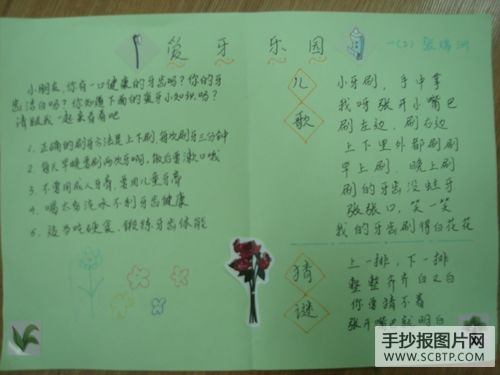 爱牙乐园
一(2) 张
小朋友,你有一口健康的牙齿吗?你的牙
齿洁白吗?你知道下面的爱牙小知识吗?
请跟我一起来看看吧
1. 正确的刷牙方法是上下刷,每次刷牙三分钟
2. 每天早晚要刷两次牙啊,饭后要漱口哦
3. 不要用成人牙膏,要用儿童牙膏
4. 喝太多汽水不利牙齿健康
5. 适当吃硬食,锻炼牙齿体能
儿歌
小牙刷,手中拿
我呀张开小嘴巴
刷左边,刷右边
上下里外都刷刷
早上刷,晚上刷
刷的牙齿没蛀牙
张张口,笑一笑
我的牙齿刷得白花花
猜谜
上一排,下一排
整整齐齐白又白
你要猜不着
张开嘴巴就明白
手抄报图片网
www.SCBTP.com